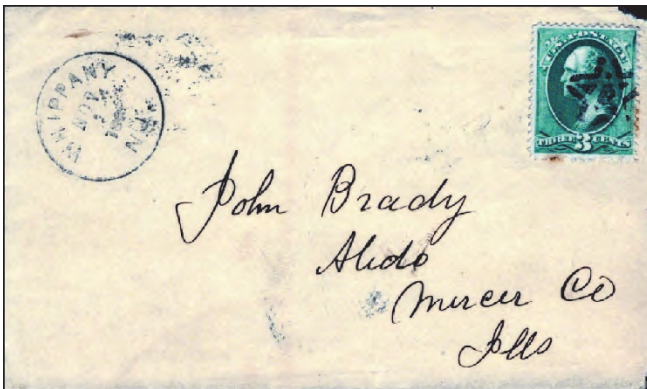 WHIPPANY N.J.
NOV
U.S. POSTAGE
THREE 3 CENTS
John Brady
Aledo
Mercer Co
Ills